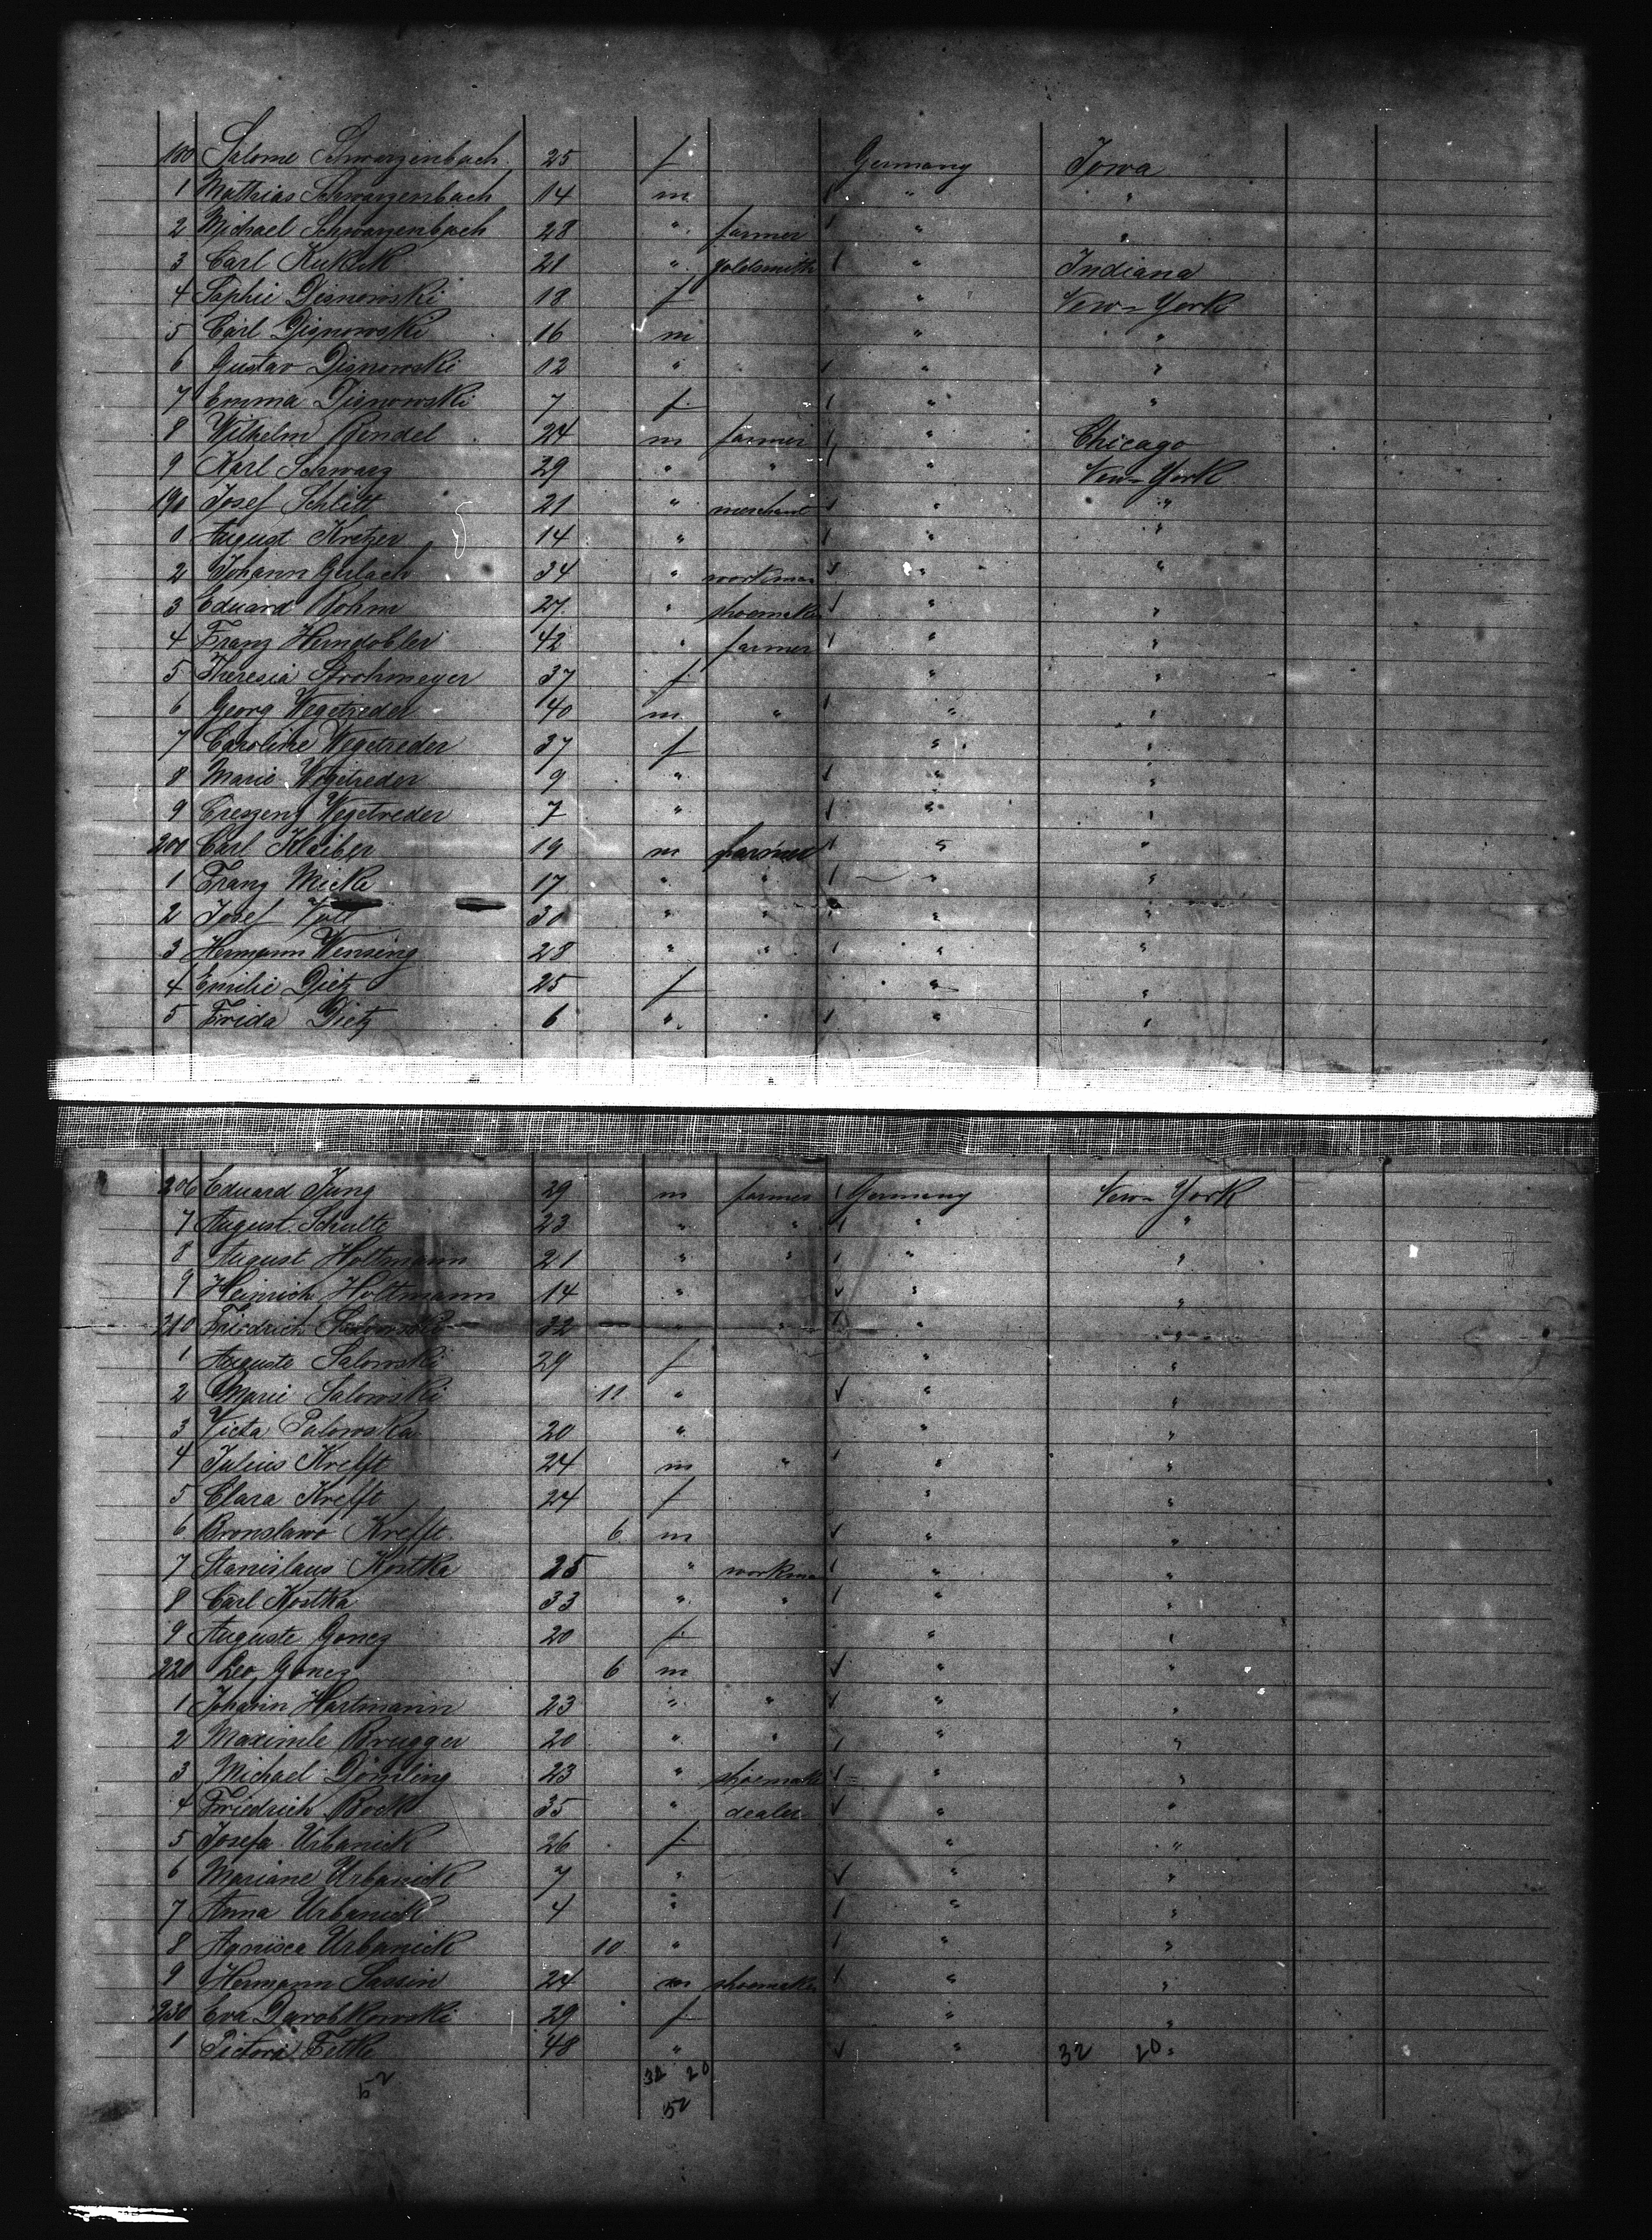 180 Salome Schwarzenbach 25 f Germany Iowa
1 Mathias Schwarzenbach 14 m " "
2 Michael Schwarzenbach 28 " farmer " "
3 Carl Kuklik 21 " goldsmith " Indiana
4 Sophie Dignowski 18 f " New-York
5 Carl Dignowski 16 m " "
6 Gustav Dignowski 12 " " "
7 Emma Dignowski 7 f " "
8 Wilhelm Rendel 24 m farmer " Chicago
9 Karl Schwarz 29 " " " New-York
190 Josef Schlitt 21 " merchant " "
1 August Kretzer 14 " " "
2 Johann Gerlach 34 " workman " "
3 Eduard Bohm 27 " shoemaker " "
4 Franz Heindobler 42 " farmer " "
5 Theresia Strohmeyer 37 f " "
6 Georg Wegetreder 40 m " " "
7 Caroline Wegetreder 37 f " "
8 Marie Wegetreder 9 " " "
9 Creszenz Wegetreder 7 " " "
200 Carl Klaiber 19 m farmer " "
1 Franz Micke 17 " " " "
2 Josef 30 " " " "
3 Hermann Wensing 28 " " " "
4 Emilie Dietz 25 f " "
5 Frida Dietz 6 " " "
206 Eduard Jung 29 m farmer Germany New-York
7 August Schulte 23 " " " "
8 August Holtmann 21 " " " "
9 Heinrich Holtmann 14 " " "
210 Friedrich Salowski 32 " " " "
1 Auguste Salowski 29 f " "
2 Marie Salowski 11 " " "
3 Victa Palowska 20 " " "
4 Julius Krefft 24 m " " "
5 Clara Krefft 24 f " "
6 Bronslawo Krefft 6 m " "
7 Stanislaus Kostka 25 " workman " "
8 Carl Kostka 33 " " " "
9 Auguste Goncz 20 f " "
220 Leo Goncz 6 m " "
1 Johann Hartmann 23 " " " "
2 Maximle Brugger 20 " " " "
3 Michael Dömling 23 " shoemaker " "
4 Friedrich Bock 35 " dealer " "
5 Josefa Urbanick 26 f " "
6 Mariane Urbanick 7 " " "
7 Anna Urbanick 4 " " "
8 Agnisca Urbanick 10 " " "
9 Hermann Sassin 24 m shoemaker " "
230 Eva Darobkowski 29 f " "
1 Pictora Fetke 48 " " 32 20 "
52 32 20
52